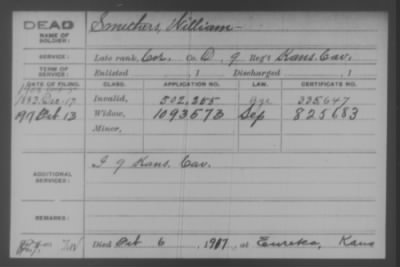 DEAD
NAME OF SOLDIER: Smethers, William
SERVICE: Late rank, Cor. Co. D, 9 Reg't Kans. Cav.
TERM OF SERVICE: Enlisted , 1 Discharged , 1
DATE OF FILING. CLASS. APPLICATION NO. LAW. CERTIFICATE NO.
1883 Dec. 17 Invalid, 502,255 335647
1917 Oct 13 Widow, 1093573 Sep 825683
Minor,
ADDITIONAL SERVICES: I 9 Kans. Cav.
REMARKS:
Died Oct 6, 1917, at Eureka, Kans